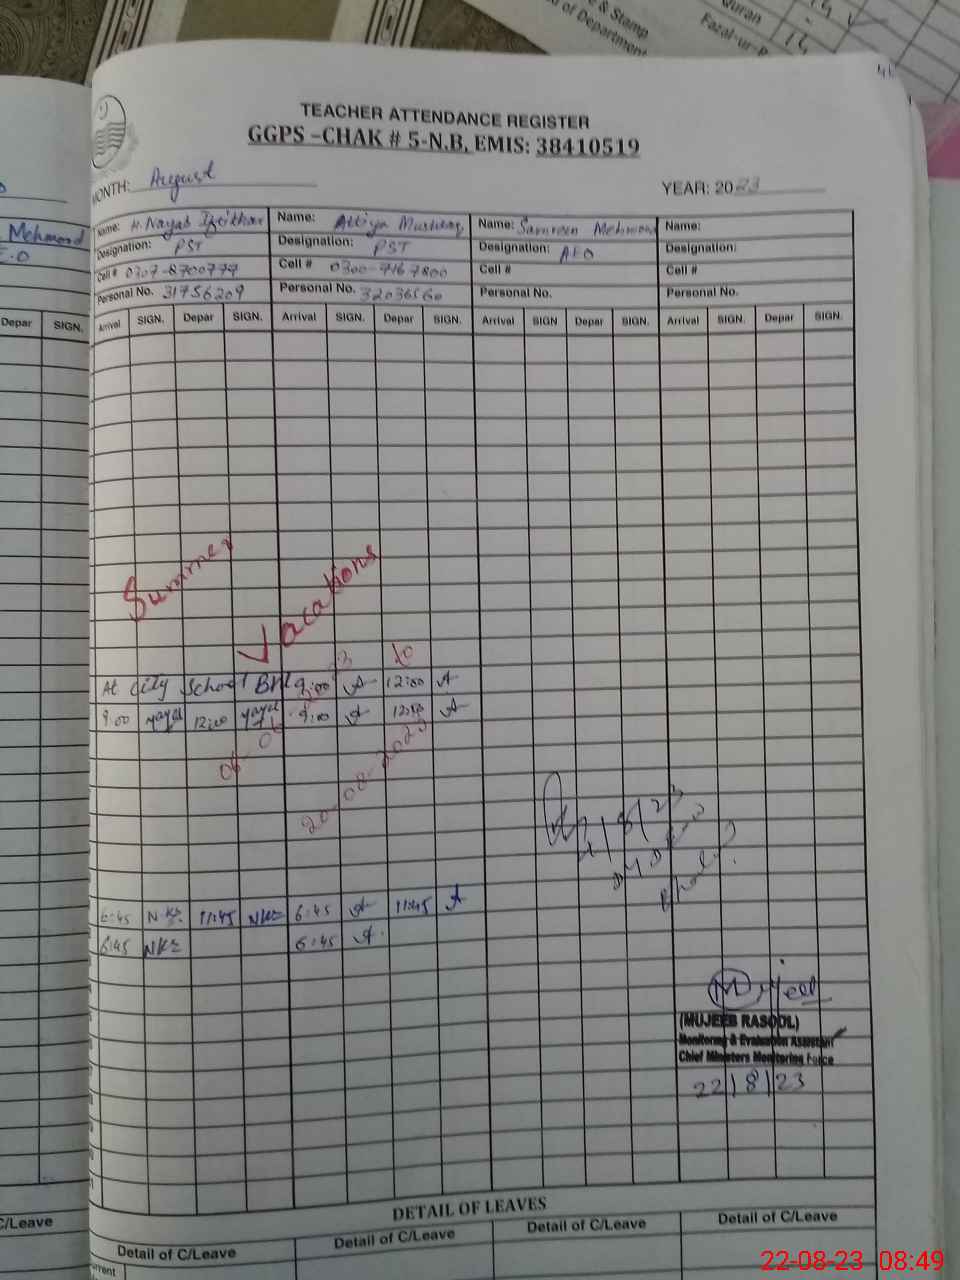 Quran
& Stamp
of Department
Fazal-ur-R
TEACHER ATTENDANCE REGISTER
GGPS –CHAK # 5-N.B, EMIS: 38410519
MONTH: August
YEAR: 2023
Mehmood
Name: H. Nayab Iftikhar Name: Attiya Mushtaq Name: Samreen Mehmood Name:
Designation: PST Designation: PST Designation: AEO Designation:
Cell # 0307-8700777 Cell # 0300-7167800 Cell # Cell #
Personal No. 31756209 Personal No. 32036560 Personal No. Personal No.
Depar SIGN. Arrival SIGN. Depar SIGN. Arrival SIGN. Depar SIGN. Arrival SIGN Depar SIGN. Arrival SIGN. Depar SIGN.
Summer
Vacations
to
At City School 9:00 A 12:00 A
9:00 12:00 9:00 A 12:00 A
20-08-2023
6:45 11:45 NKz 6:45 A 11:45 A
6:45 NKz 6:45 A
Mujeeb
(MUJEEB RASOOL)
Monitoring & Evaluation Assistant
Chief Ministers Monitoring Force
22/8/23
DETAIL OF LEAVES
C/Leave Detail of C/Leave Detail of C/Leave Detail of C/Leave Detail of C/Leave
22-08-23 08:49